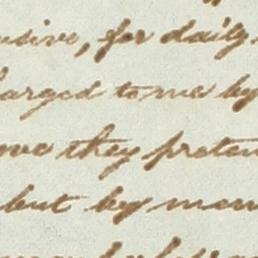 usive, for daily
larged to me by
ove they preten
but by mem